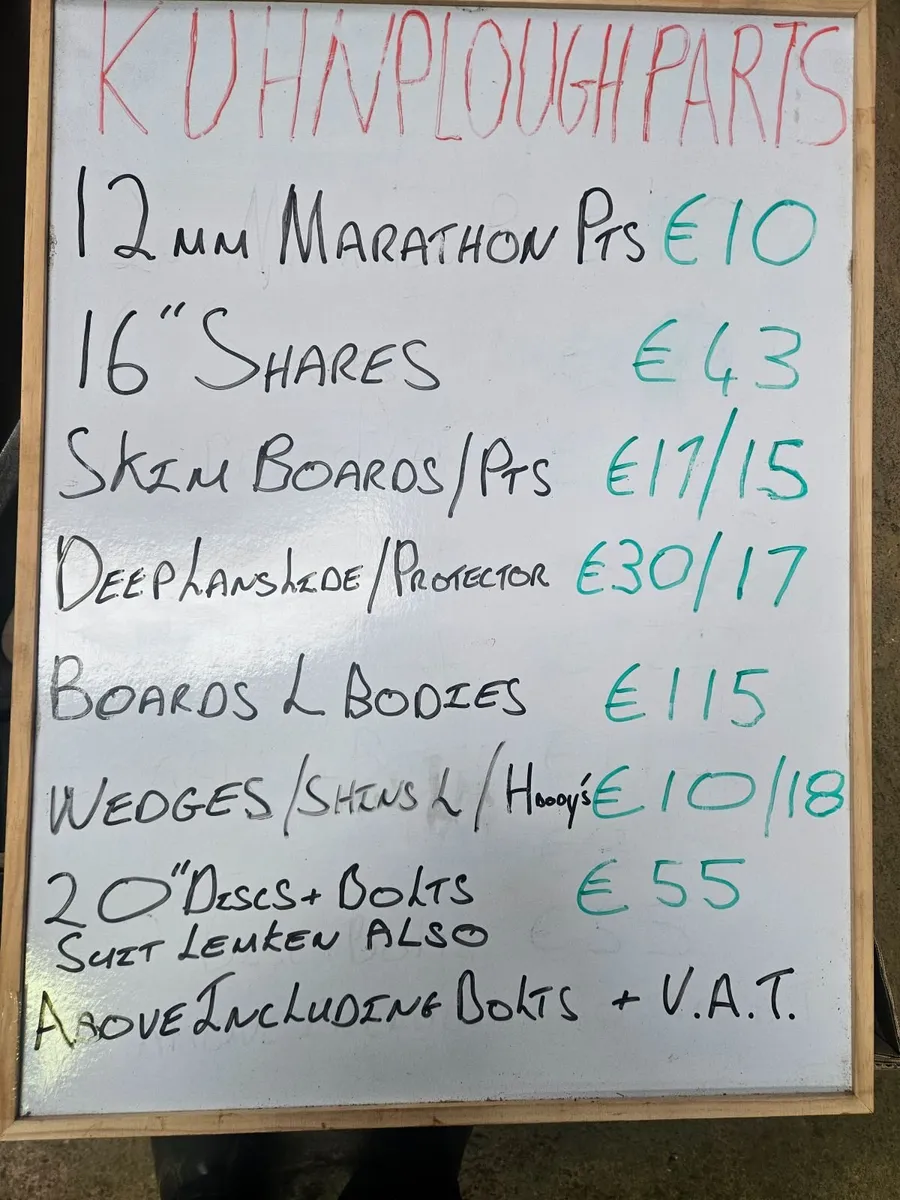 KUHN PLOUGH PARTS
12MM MARATHON PTS €10
16" SHARES €43
SKIM BOARDS/PTS €17/15
DEEP LANSLIDE/PROTECTOR €30/17
BOARDS L BODIES €115
WEDGES/SHINS L/ €10/18
20" DISCS + BOLTS €55
SUIT LEMKEN ALSO
ABOVE INCLUDING BOLTS + V.A.T.